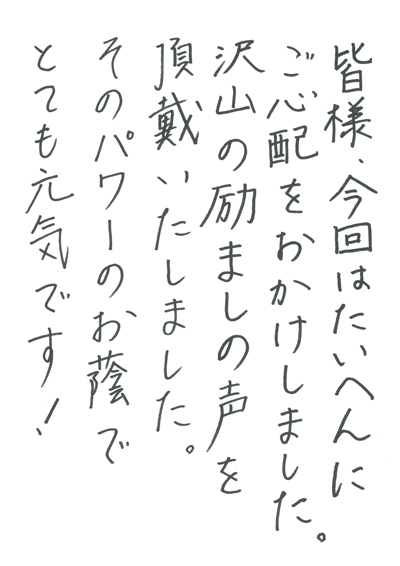 皆様、今回はたいへんに
ご心配をおかけしました。
沢山の励ましの声を
頂戴いたしました。
そのパワーのお蔭で
とても元気です！